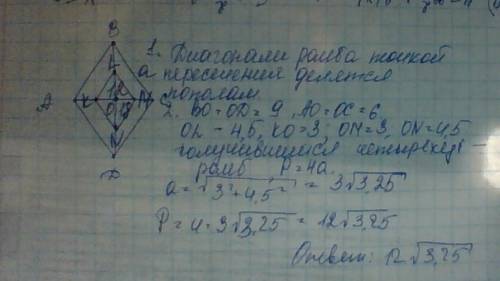 B
L
a
A K O M C
12
18
N
D
1. Диагонали ромба точкой
пересечения делятся
пополам.
2. BO=OD=9, AO=OC=6,
OL - 4,5, KO=3; OM=3, ON=4,5
получившийся четырехуг -
ромб, P=4a.
a = √3²+4,5² = 3√3,25
P = 4 · 3√3,25 = 12√3,25
Ответ: 12√3,25